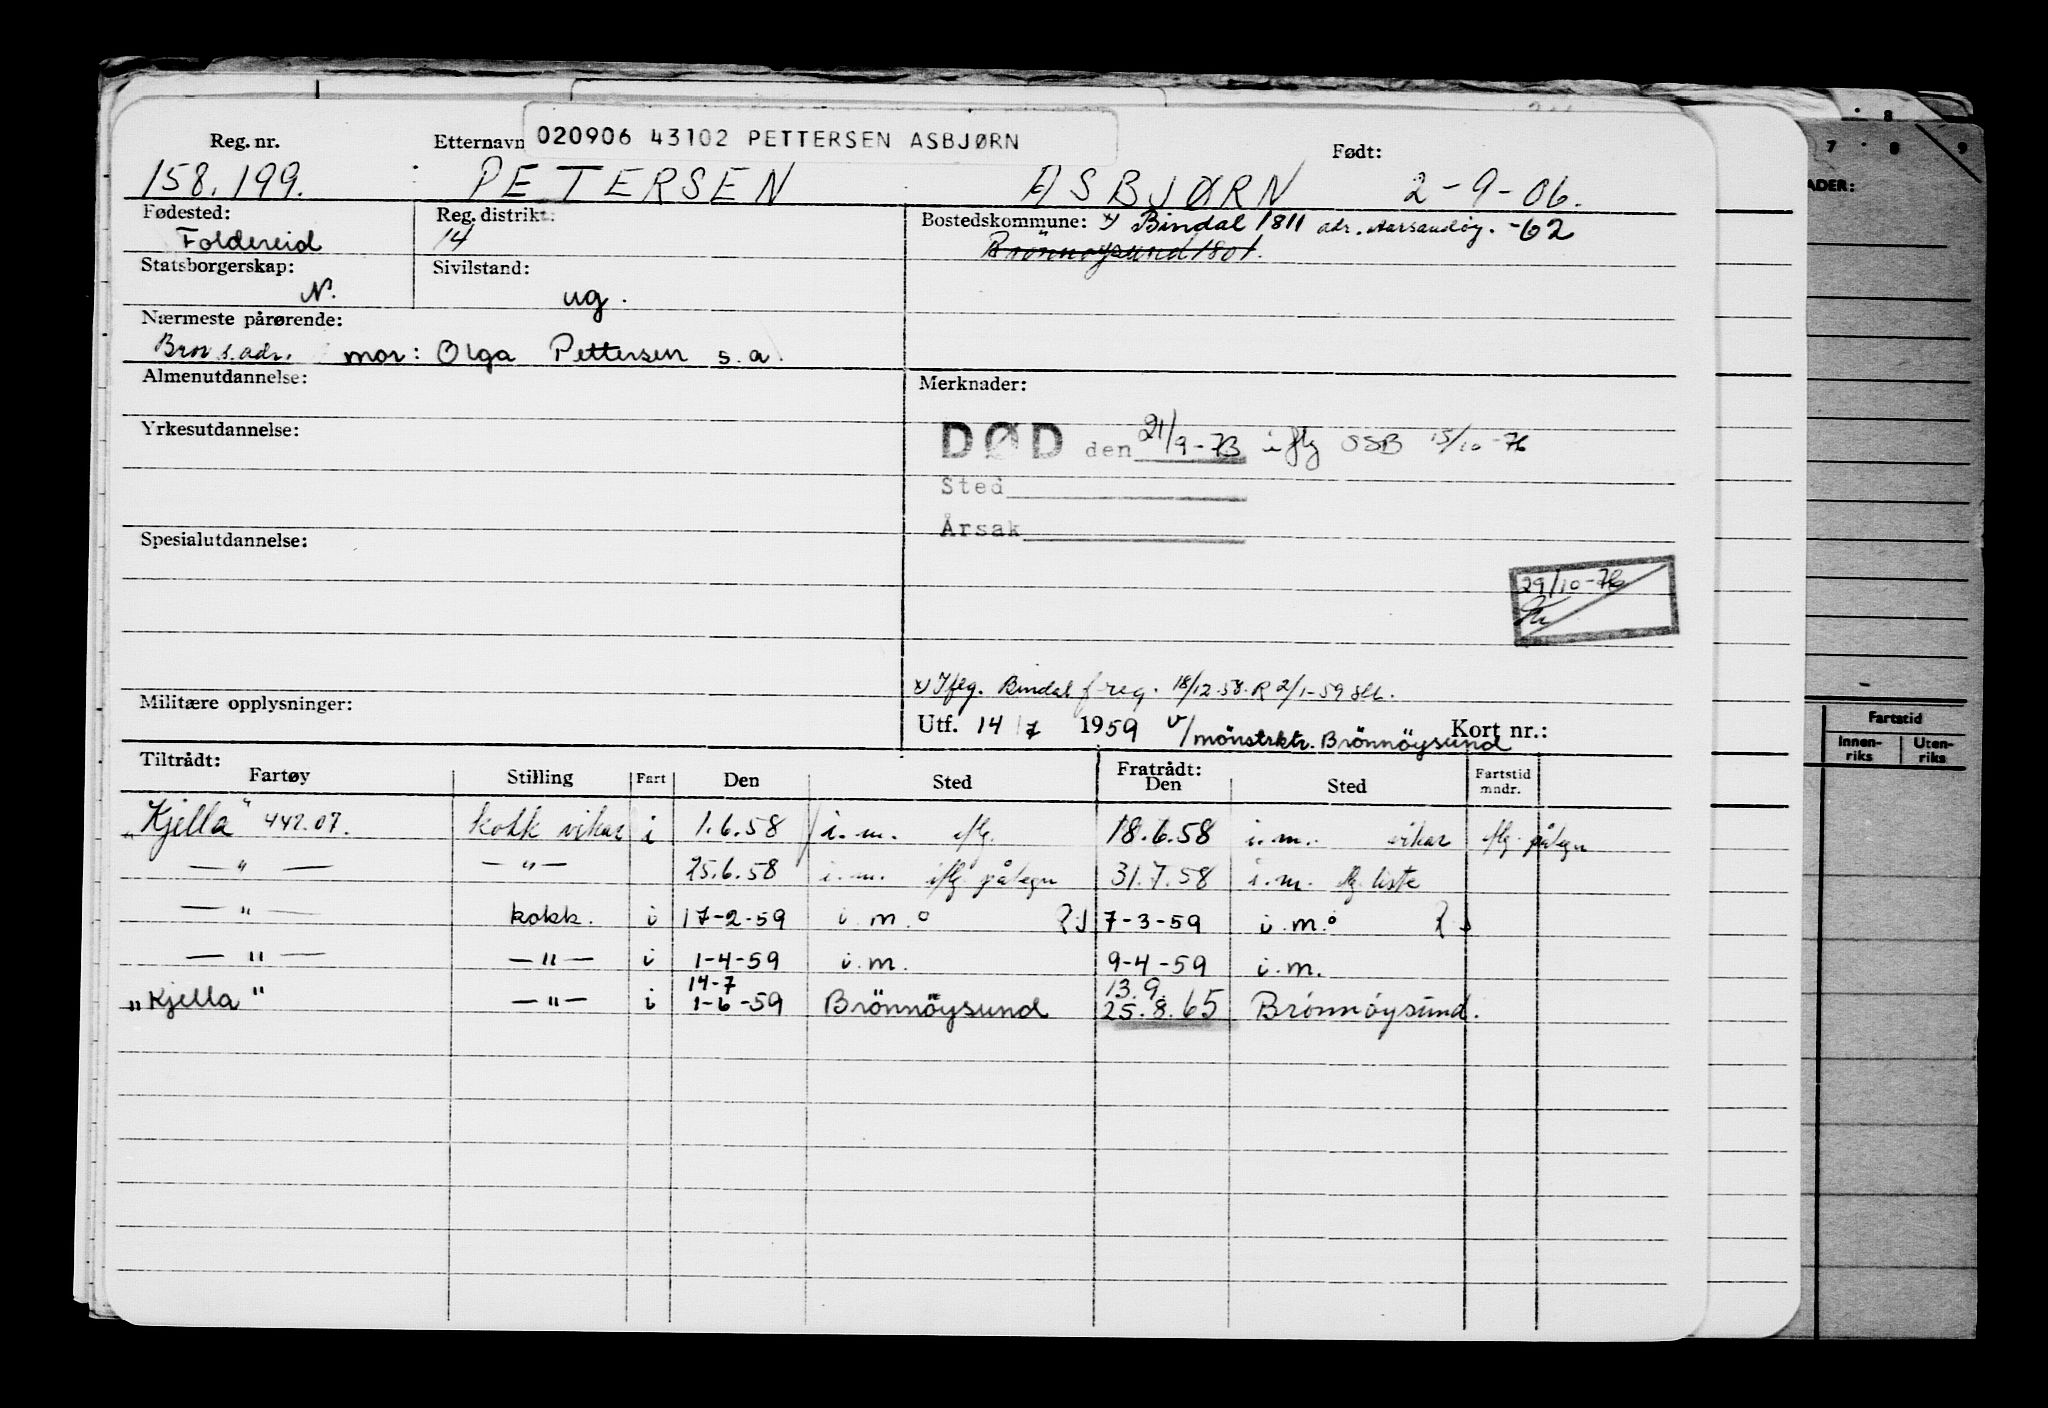 020906 43102 PETTERSEN ASBJØRN
Reg. nr. Etternavn Født:
158.199. PETERSEN ASBJØRN 2-9-06.
Fødested: Reg. distrikt: Bostedskommune: x) Bindal 1811 adr. Aarsandøy. -62
Foldereid 14 Brönnöysund 1801.
Statsborgerskap: Sivilstand:
N. ug.
Nærmeste pårørende:
Bror s. adr. mor: Olga Pettersen s.a.
Almenutdannelse: Merknader:
Yrkesutdannelse:
DØD den 21/9-73 iflg SSB 15/10-76
Sted
Årsak
Spesialutdannelse:
29/10-76
x) Iflg. Bindal f.reg. 18/12-58. R 2/1-59
Militære opplysninger: Utf. 14/7 1959 v/mönstrktr. Brönnöysund Kort nr.:
Tiltrådt: Fratrådt:
Fartøy Stilling Fart Den Sted Den Sted Fartstid mndr.
"Kjella" 442.07. kokk vikar i 1.6.58 i.m. iflg. 18.6.58 i.m. vikar iflg. påtegn
— " — — " — 25.6.58 i.m. iflg påtegn 31.7.58 i.m. iflg. liste
— " — kokk. i 17-2-59 i.m. 7-3-59 i.m.
— " — — " — i 1-4-59 i.m. 9-4-59 i.m.
14-7 13.9.
"Kjella" — " — i 1-6-59 Brönnöysund 25.8.65 Brönnöysund.
7 8 9
ADER:
Fartstid
Innen-riks Uten-riks